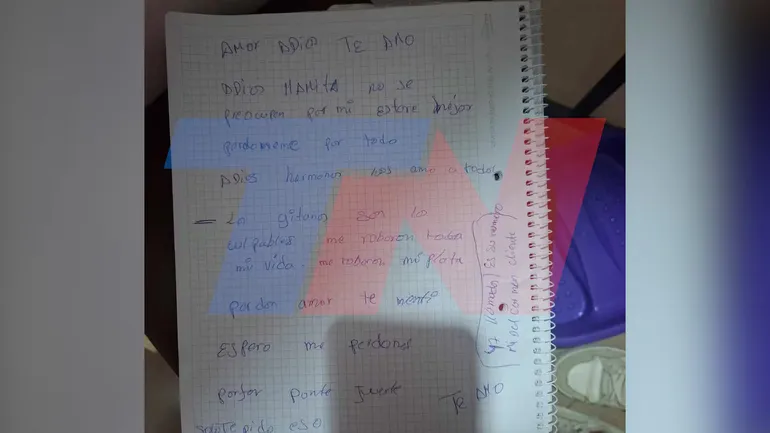 AMOR ADIOS TE AMO
ADIOS MAMITA no se
preocupen por mi estare mejor
perdoneme por todo
ADIOS hermanos los amo a todos
— Los gitanos son los
culpables me robaron toda
mi vida. me robaron mi plata
perdon amor te menti
ESPERO me perdones
porfor ponte fuerte
TE AMO
solo te pido eso
Es su numero
TN